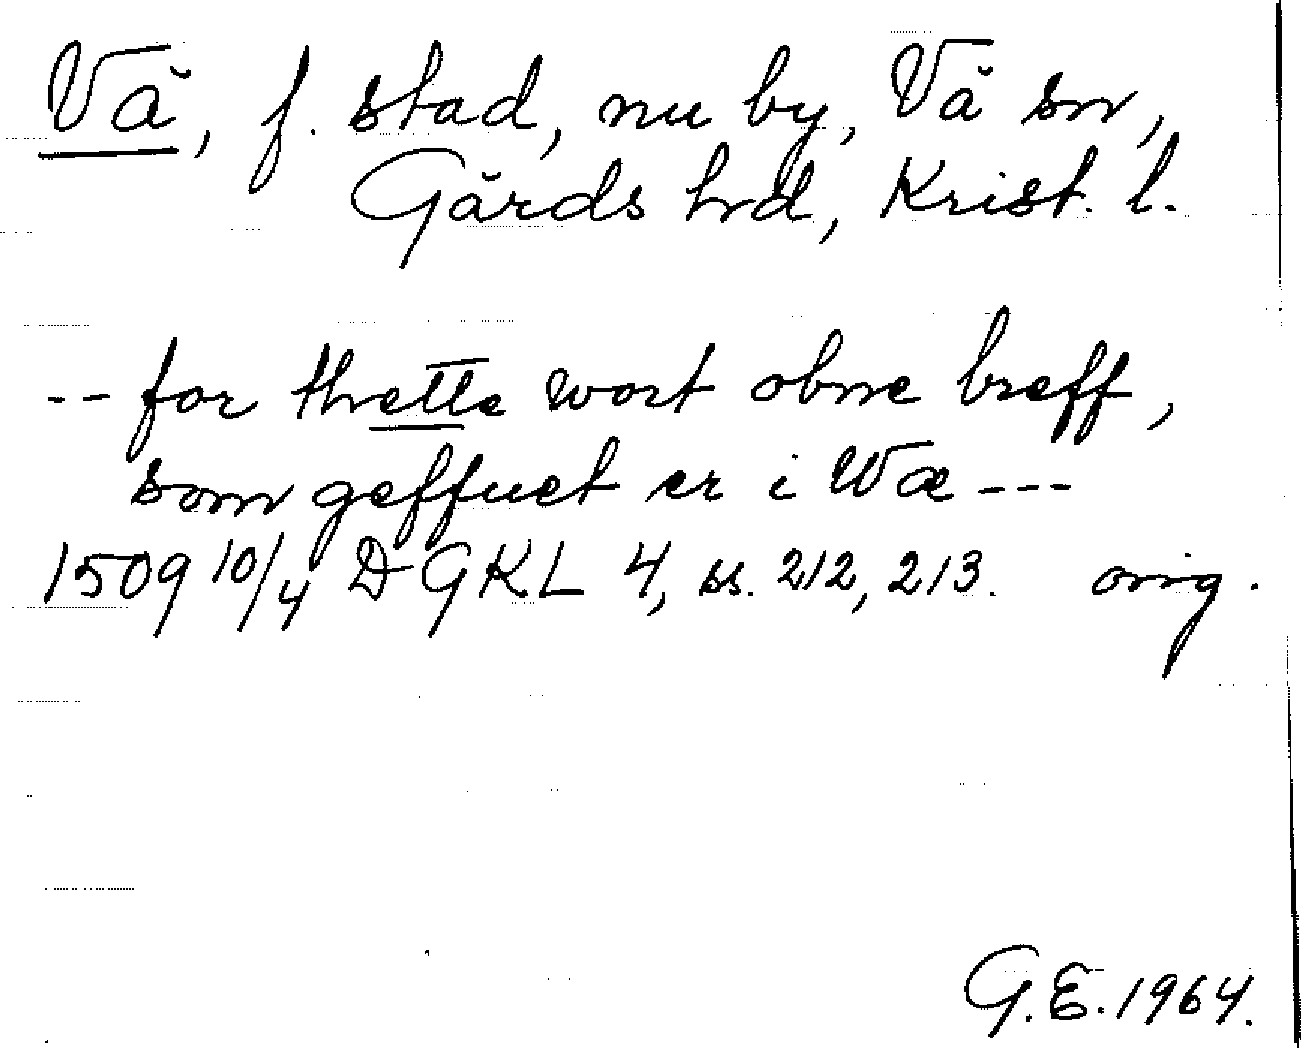 Vä, f. stad, nu by, Vä sn,
Gärds hrd, Krist. l.
-- for thette wort obne breff,
som geffuet er i Wæ ---
1509 10/4 DGKL 4, ss. 212, 213. orig.
G.E. 1964.